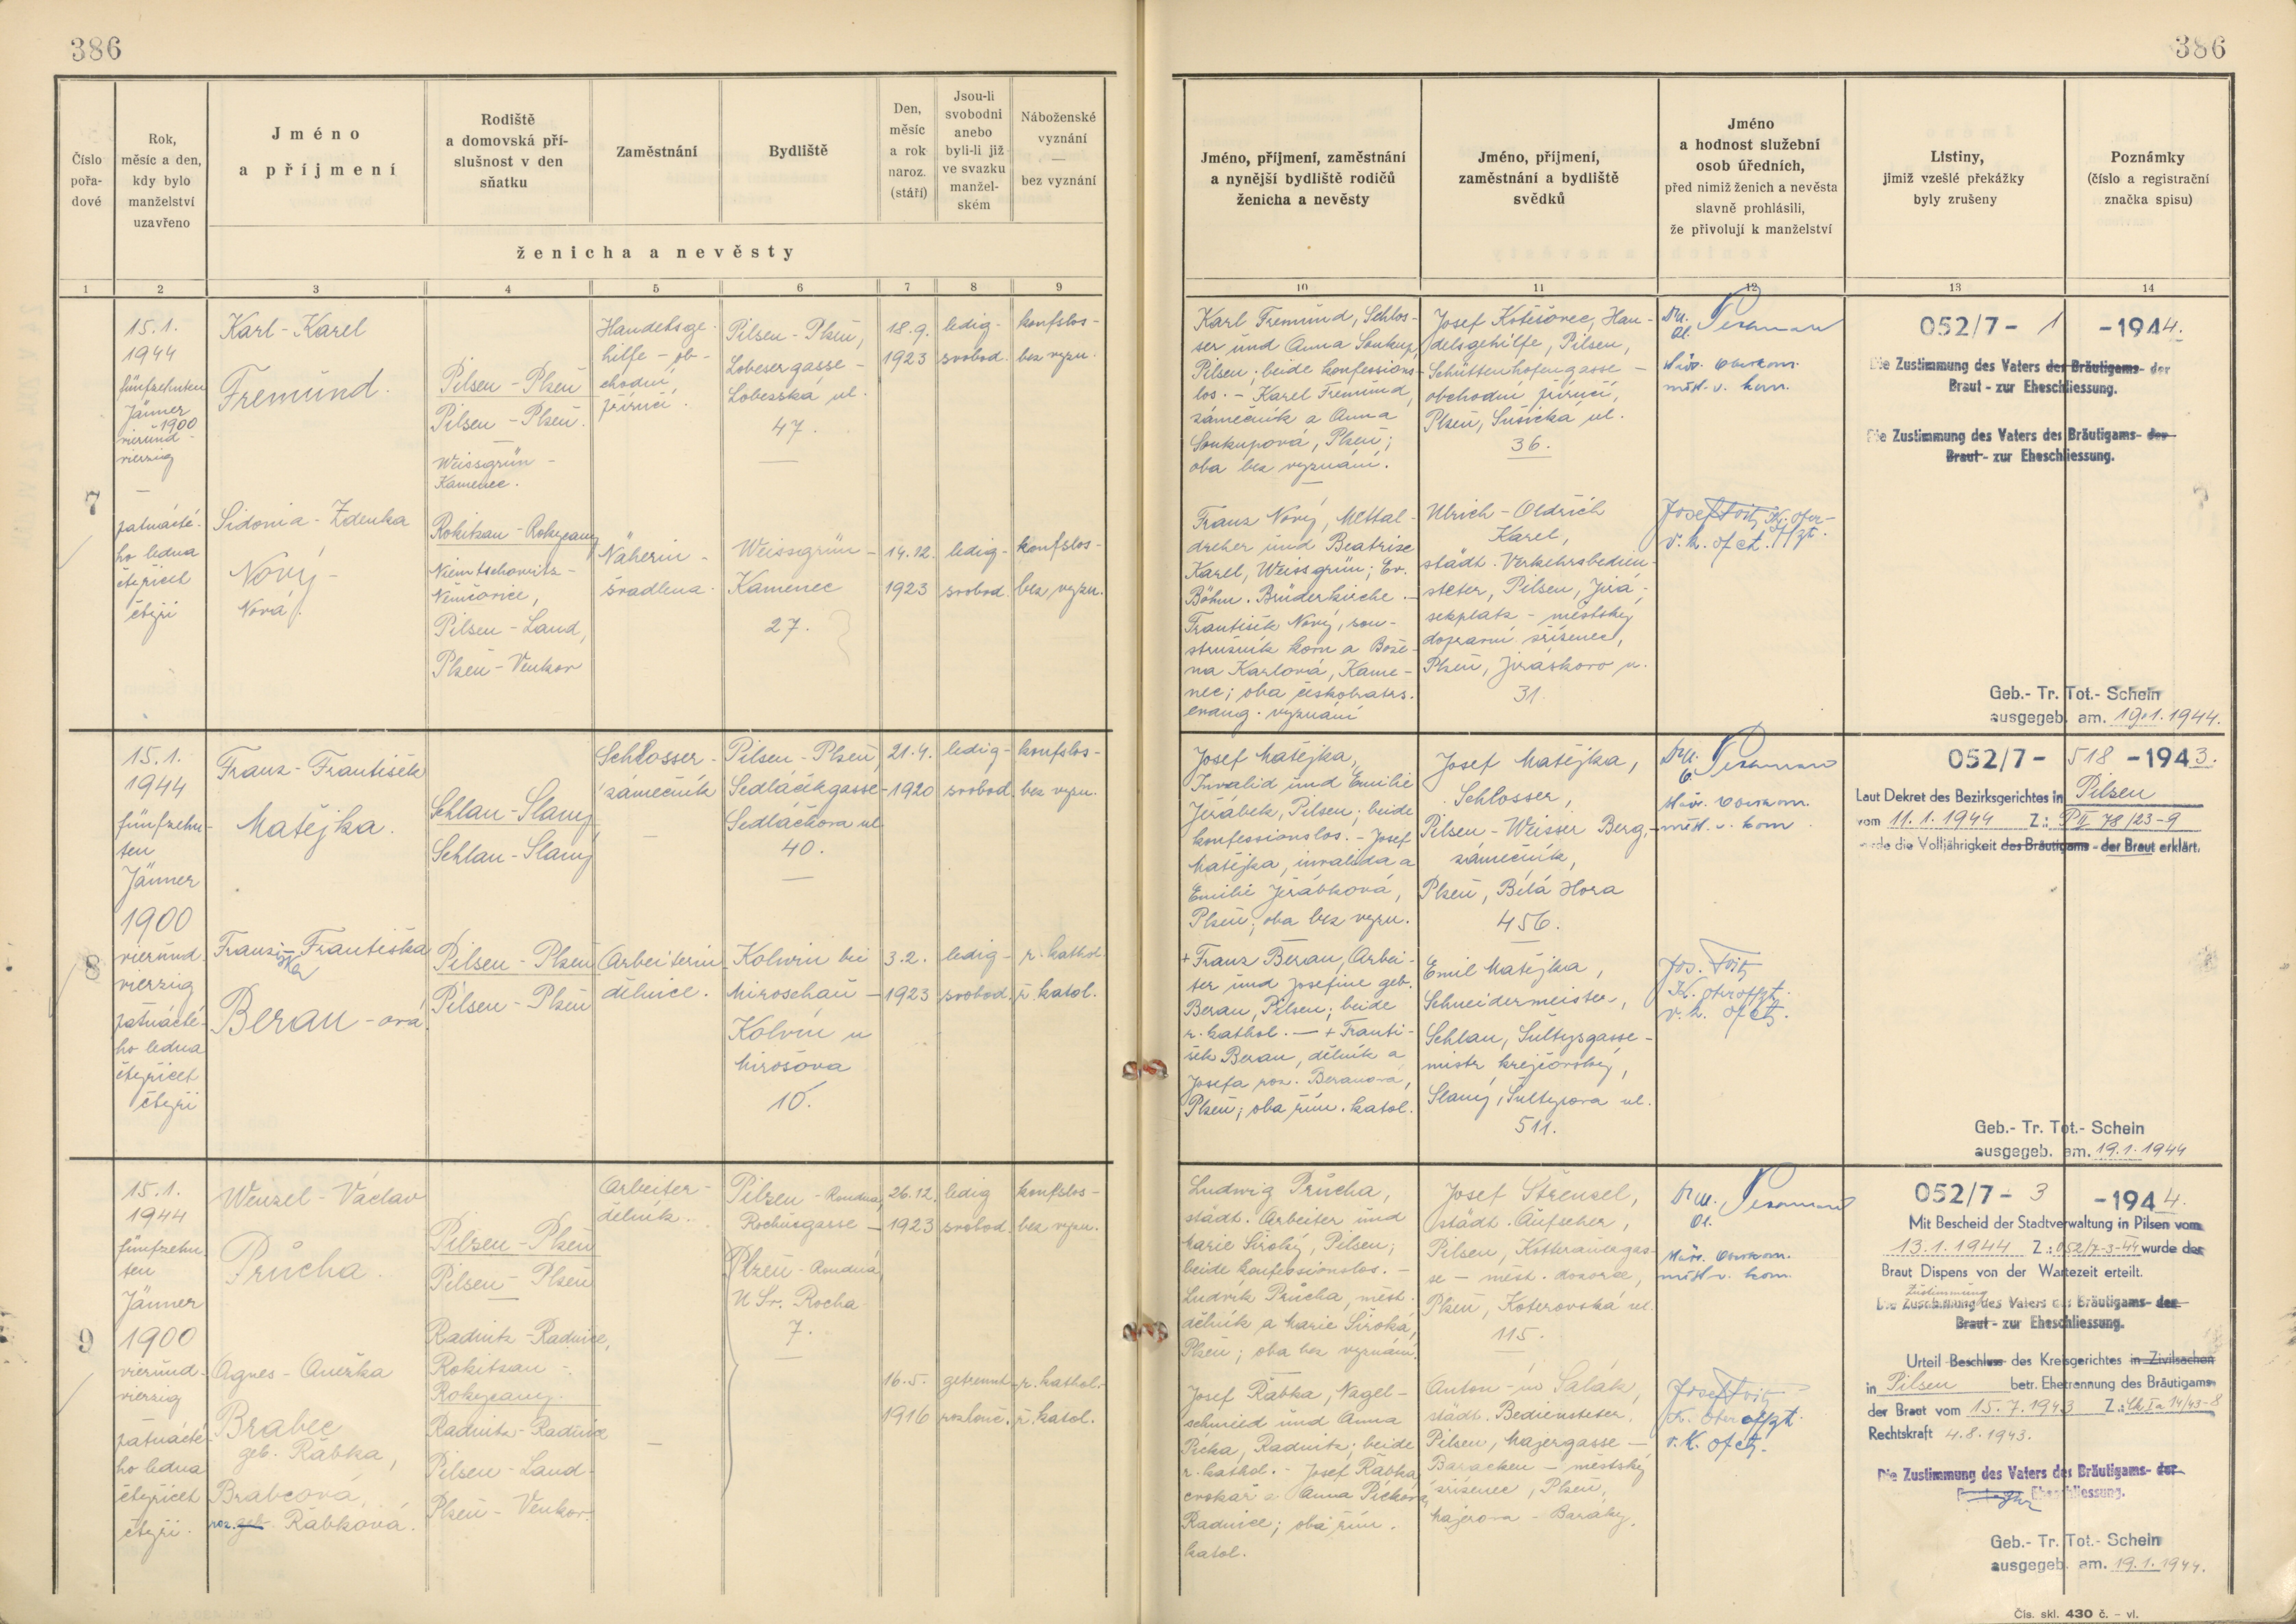 386
386
Číslo pořa-dové
Rok, měsíc a den, kdy bylo manželství uzavřeno
Jméno
a příjmení
Rodiště
a domovská pří-
slušnost v den
sňatku
Zaměstnání
Bydliště
Den,
měsíc
a rok
naroz.
(stáří)
Jsou-li
svobodni
anebo
byli-li již
ve svazku
manžel-
ském
Náboženské
vyznání
—
bez vyznání
ženicha a nevěsty
Jméno, příjmení, zaměstnání
a nynější bydliště rodičů
ženicha a nevěsty
Jméno, příjmení,
zaměstnání a bydliště
svědků
Jméno
a hodnost služební
osob úředních,
před nimiž ženich a nevěsta
slavně prohlásili,
že přivolují k manželství
Listiny,
jimiž vzešlé překážky
byly zrušeny
Poznámky
(číslo a registrační
značka spisu)
1 2 3 4 5 6 7 8 9 10 11 12 13 14
7
15.1.
1944
fünfzehnten
Jänner
1900
vierund-
vierzig
—
patnácté-
ho ledna
čtyřicet
čtyři
Karl - Karel
Fremund.
Sidonia - Zdenka
Nový -
Nová.
Pilsen - Plzeň
Pilsen - Plzeň.
Weissgrün -
Kamenec.
Rokitzan - Rokycany
Niemtschowitz -
Němčovice,
Pilsen - Land,
Plzeň - Venkov
Handelsge-
hilfe - ob-
chodní
příručí.
Näherin -
švadlena.
Pilsen - Plzeň,
Lobesergasse -
Lobezská ul.
47.
Weissgrün -
Kamenec
27.
18.9.
1923
14.12.
1923
ledig -
svobod.
ledig -
svobod.
konfslos -
bez vyzn.
konfslos -
bez vyzn.
Karl Fremund, Schlos-
ser und Anna Soukup,
Pilsen; beide konfessions-
los. - Karel Fremund,
zámečník a Anna
Soukupová, Plzeň;
oba bez vyznání.
Franz Nový, Mettal-
dreher und Beatrise
Karel, Weissgrün; Ev.
Böhm. Brüderkirche. -
František Nový, sou-
stružník kovu a Bože-
na Karlová, Kame-
nec; oba českobratrs.
evang. vyznání
Josef Kotěšovec, Han-
delsgehilfe, Pilsen,
Schüttenhofengasse -
obchodní příručí,
Plzeň, Sušická ul.
36.
Ulrich - Oldřich
Karel,
städt. Verkehrsbedien-
steter, Pilsen, Jirá-
sekplatz - městský
dopravní zřízenec,
Plzeň, Jiráskovo n.
31.
052/7- 1 -1944.
Die Zustimmung des Vaters des Bräutigams- der
Braut - zur Eheschliessung.
Die Zustimmung des Vaters des Bräutigams- der
Braut - zur Eheschliessung.
Geb.- Tr. Tot.- Schein
ausgegeb. am. 19.1.1944.
8
15.1.
1944
fünfzehn-
ten
Jänner
1900
vierund-
vierzig
patnácté-
ho ledna
čtyřicet
čtyři
Franz - František
Matějka.
Franziska - Františka
Beran - ová
Schlan - Slaný
Schlan - Slaný
Pilsen - Plzeň
Pilsen - Plzeň
Schlosser -
zámečník
Arbeiterin
dělnice.
Pilsen - Plzeň,
Sedláčekgasse -
Sedláčkova ul.
40.
Kolwin bei
Miroschau -
Kolvín u
Mirošova
10.
21.4.
1920
3.2.
1923
ledig -
svobod.
ledig -
svobod.
konfslos -
bez vyzn.
r. kathol.
ř. katol.
Josef Matějka,
Invalid und Emilie
Jeřábek, Pilsen; beide
konfessionslos. - Josef
Matějka, invalida a
Emilie Jeřábková,
Plzeň; oba bez vyzn.
+ Franz Beran, Arbei-
ter und Josefine geb.
Beran, Pilsen; beide
r. kathol. — + Franti-
šek Beran, dělník a
Josefa roz. Beranová,
Plzeň; oba řím. katol.
Josef Matějka,
Schlosser,
Pilsen - Weisser Berg, -
zámečník,
Plzeň, Bílá Hora
456.
Emil Matějka,
Schneidermeister,
Schlan, Šultysgasse -
mistr krejčovský,
Slaný, Šultysova ul.
511.
052/7- 518 -1943.
Laut Dekret des Bezirksgerichtes in Pilsen
vom 11.1.1944 Z.: P II 78/23-9
wurde die Volljährigkeit des Bräutigams - der Braut erklärt.
Geb.- Tr. Tot.- Schein
ausgegeb. am. 19.1.1944
9
15.1.
1944
fünfzehn-
ten
Jänner
1900
vierund-
vierzig
patnácté-
ho ledna
čtyřicet
čtyři.
Wenzel - Václav
Průcha.
Agnes - Anežka
Brabec
geb. Rabka,
Brabcová
roz. geb. Rabková.
Pilsen - Plzeň
Pilsen - Plzeň
Radnitz - Radnice,
Rokitzan -
Rokycany.
Radnitz - Radnice
Pilsen - Land -
Plzeň - Venkov.
Arbeiter -
dělník.
Pilsen - Roudná,
Rochusgasse -
Plzeň - Roudná,
U Sv. Rocha
7.
26.12.
1923
16.5.
1916
ledig
svobod.
getrennt -
rozlouč.
konfslos -
bez vyzn.
r. kathol. -
ř. katol.
Ludwig Průcha,
städt. Arbeiter und
Marie Široký, Pilsen;
beide konfessionslos. -
Ludvík Průcha, měst.
dělník a Marie Široká,
Plzeň; oba bez vyznání.
Josef Rabka, Nagel-
schmied und Anna
Pícka, Radnitz; beide
r. kathol. - Josef Rabka,
cvokař a Anna Píckova,
Radnice; oba řím.
katol.
Josef Štrenzel,
städt. Aufseher,
Pilsen, Kotterauergas-
se - měst. dozorce,
Plzeň, Koterovská ul.
115.
Anton - ín Salák,
städt. Bediensteter,
Pilsen, Majergasse -
Baracken - městský
zřízenec, Plzeň,
Majerova - Baráky.
052/7- 3 -1944.
Mit Bescheid der Stadtverwaltung in Pilsen vom
13.1.1944 Z.: 052/7-3-44 wurde der
Braut Dispens von der Wartezeit erteilt.
Zustimmung
Die Zustimmung des Vaters des Bräutigams- der
Braut - zur Eheschliessung.
Urteil Beschluss des Kreisgerichtes in Zivilsachen
in Pilsen betr. Ehetrennung des Bräutigams
der Braut vom 15.7.1943 Z.: Ck Ia 14/43-8
Rechtskraft 4.8.1943.
Die Zustimmung des Vaters des Bräutigams- der
Eheschliessung.
Geb.- Tr. Tot.- Schein
ausgegeb. am. 19.1.1944.
Čís. skl. 430 č. – vl.